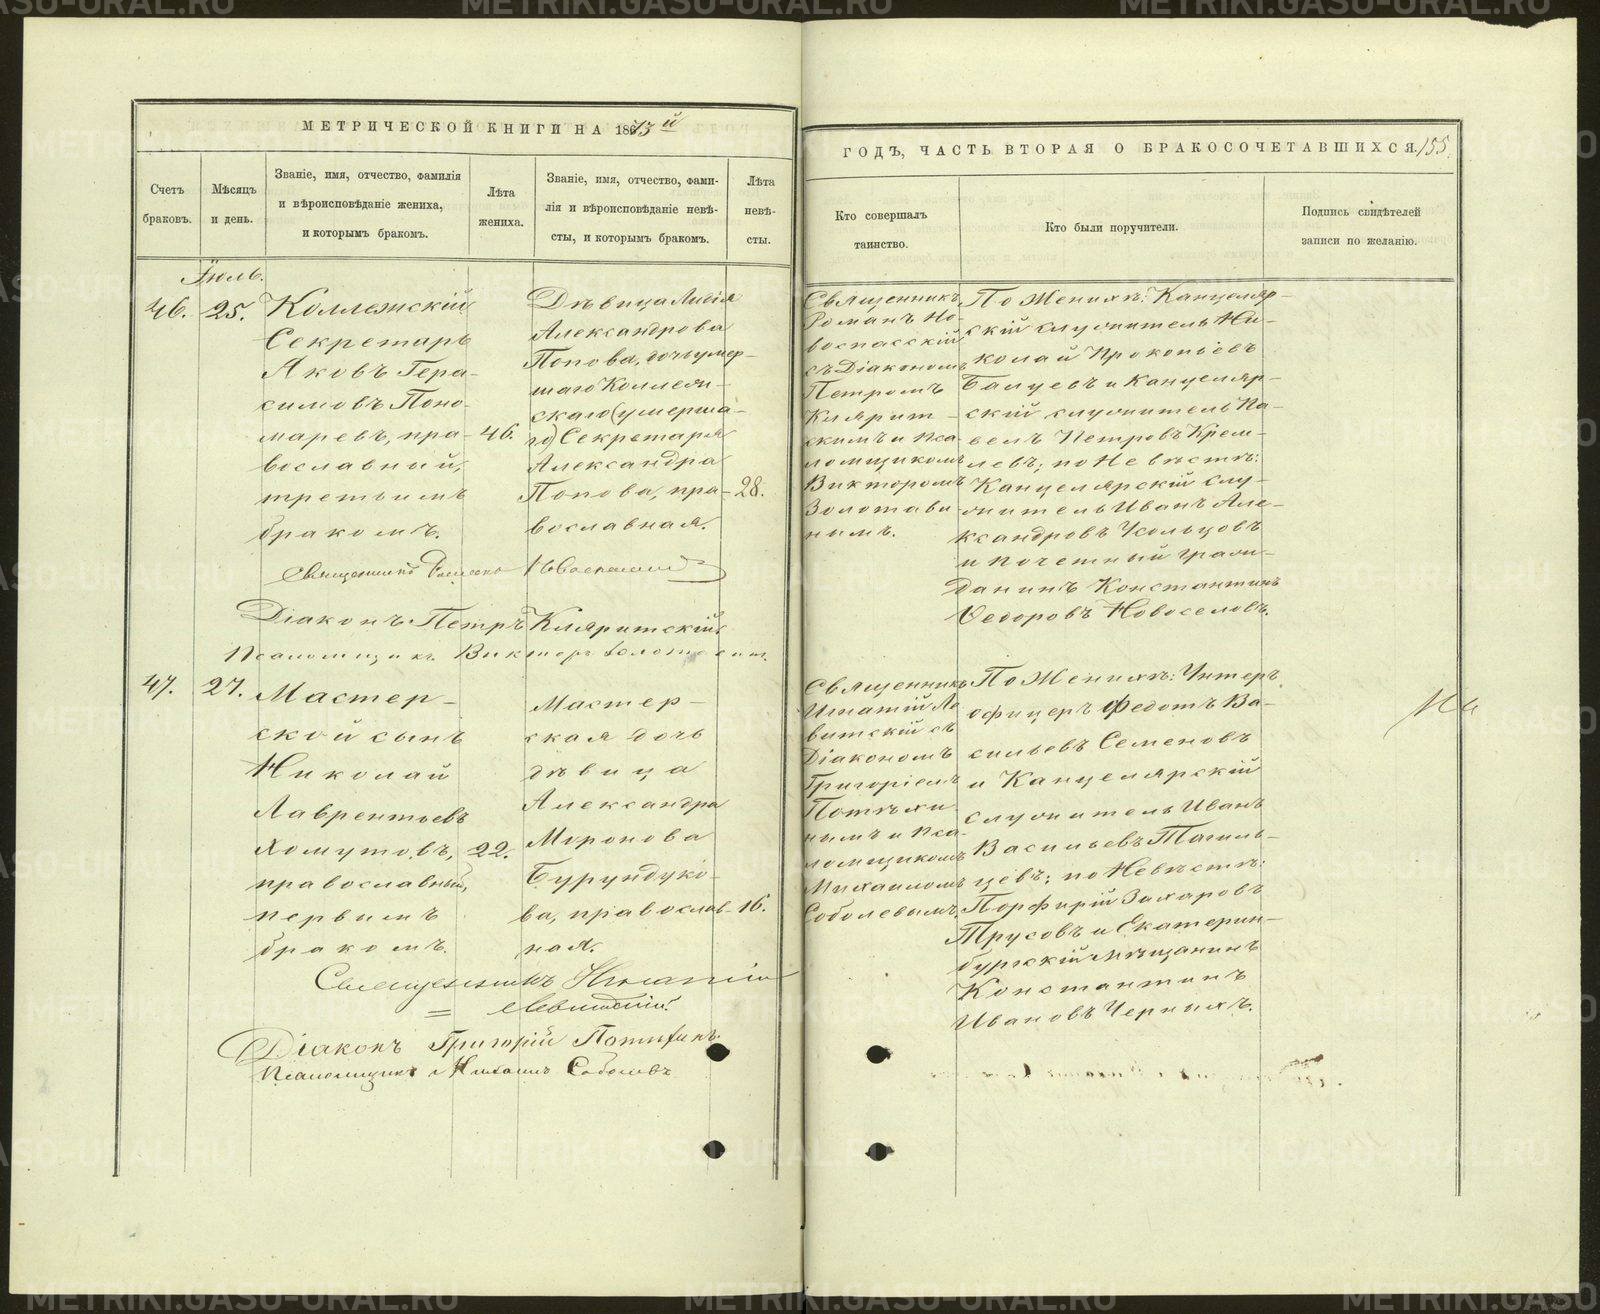 МЕТРИЧЕСКОЙ КНИГИ НА 1873й
ГОДЪ, ЧАСТЬ ВТОРАЯ О БРАКОСОЧЕТАВШИХСЯ. 155.
Счетъ
браковъ.
Мѣсяцъ
и день.
Званіе, имя, отчество, фамилія
и вѣроисповѣданіе жениха,
и которымъ бракомъ.
Лѣта
жениха.
Званіе, имя, отчество, фами-
лія и вѣроисповѣданіе невѣ-
сты, и которымъ бракомъ.
Лѣта
невѣ-
сты.
Кто совершалъ
таинство.
Кто были поручители.
Подпись свидѣтелей
записи по желанію.
Іюль.
46.
25.
Коллежскій
Секретарь
Яковъ Гера-
симовъ Поно-
маревъ, пра-
вославный,
третьимъ
бракомъ.
46.
Дѣвица Лидія
Александрова
Попова, дочь умер-
шаго Коллеж-
скаго (умерша-
го) Секретаря
Александра
Попова, пра-
вославная.
28.
Священникъ
Романъ Но-
воспасскій
съ Діакономъ
Петромъ
Клярит-
скимъ и пса-
ломщикомъ
Викторомъ
Золотави-
нымъ.
По Женихѣ: Канцеляр-
скій служитель Ни-
колай Прокопьевъ
Балуевъ и Канцеляр-
скій служитель Па-
велъ Петровъ Крем-
левъ; по Невѣстѣ:
Канцелярскій слу-
житель Иванъ Але-
ксандровъ Усольцовъ
и почетный граж-
данинъ Константинъ
Ѳедоровъ Новоселовъ.
Священникъ Романъ Новоспасскій
Діаконъ Петръ Кляритскій
Псаломщикъ Викторъ Золотавинъ.
47.
27.
Мастер-
ской сынъ
Николай
Лаврентьевъ
Хомутовъ,
православный,
первымъ
бракомъ.
22.
Мастер-
ская дочь
дѣвица
Александра
Миронова
Бурундуко-
ва, православ-
ная.
16.
Священникъ
Игнатій Ле-
витскій съ
Діакономъ
Григоріемъ
Потѣхи-
нымъ и пса-
ломщикомъ
Михаиломъ
Соболевымъ.
По Женихѣ: Унтеръ
офицеръ Федотъ Ва-
сильевъ Семеновъ
и Канцелярскій
служитель Иванъ
Васильевъ Тагиль-
цевъ; по Невѣстѣ:
Порфирій Захаровъ
Трусовъ и Екатерин-
бургскій мѣщанинъ
Константинъ
Ивановъ Черныхъ.
Священникъ Игнатій
Левитскій.
Діаконъ Григорій Потѣхинъ.
Псаломщикъ Михаилъ Соболевъ